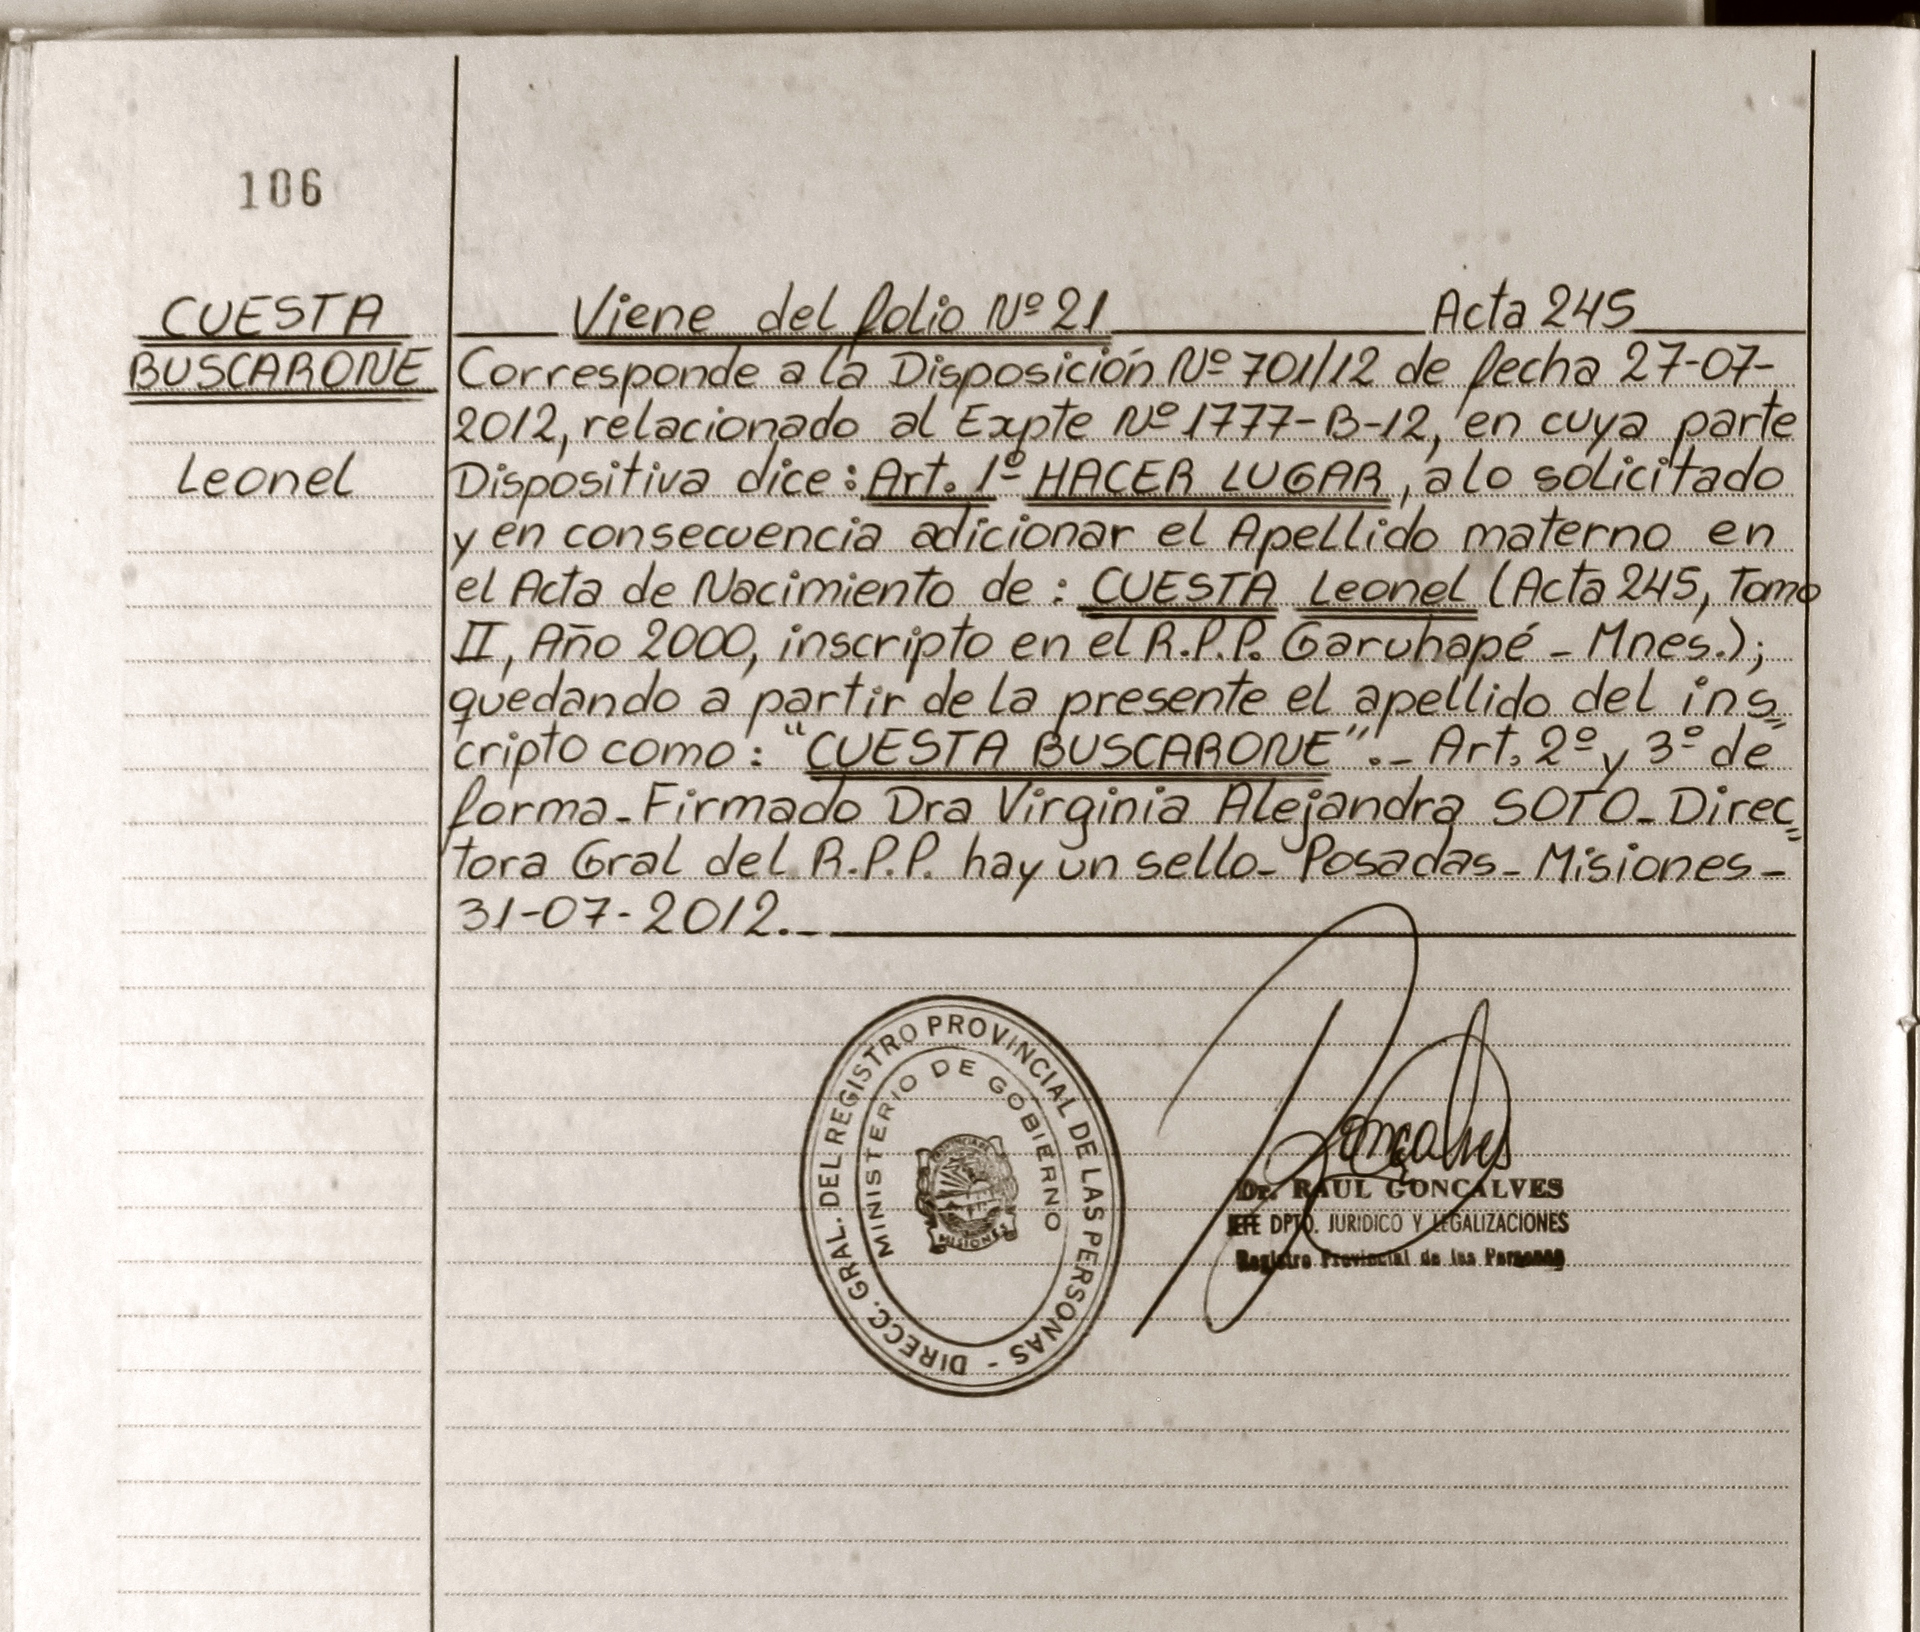 106
CUESTA
BUSCARONE
Leonel
Viene del folio Nº 21 Acta 245
Corresponde a la Disposición Nº 701/12 de fecha 27-07-
2012, relacionado al Expte Nº 1777-B-12, en cuya parte
Dispositiva dice: Art. 1º HACER LUGAR, a lo solicitado
y en consecuencia adicionar el Apellido materno en
el Acta de Nacimiento de: CUESTA Leonel (Acta 245, Tomo
II, Año 2000, inscripto en el R.P.P. Garuhapé - Mnes.);
quedando a partir de la presente el apellido del ins=
cripto como: "CUESTA BUSCARONE".- Art. 2º y 3º de
forma - Firmado Dra Virginia Alejandra SOTO - Direc=
tora Gral del R.P.P. hay un sello - Posadas - Misiones -
31-07-2012.-
DIRECC. GRAL. DEL REGISTRO PROVINCIAL DE LAS PERSONAS -
MINISTERIO DE GOBIERNO
PROVINCIA DE
MISIONES
Gonçalves
Dr. RAUL GONCALVES
JEFE DPTO. JURIDICO Y LEGALIZACIONES
Registro Provincial de las Personas